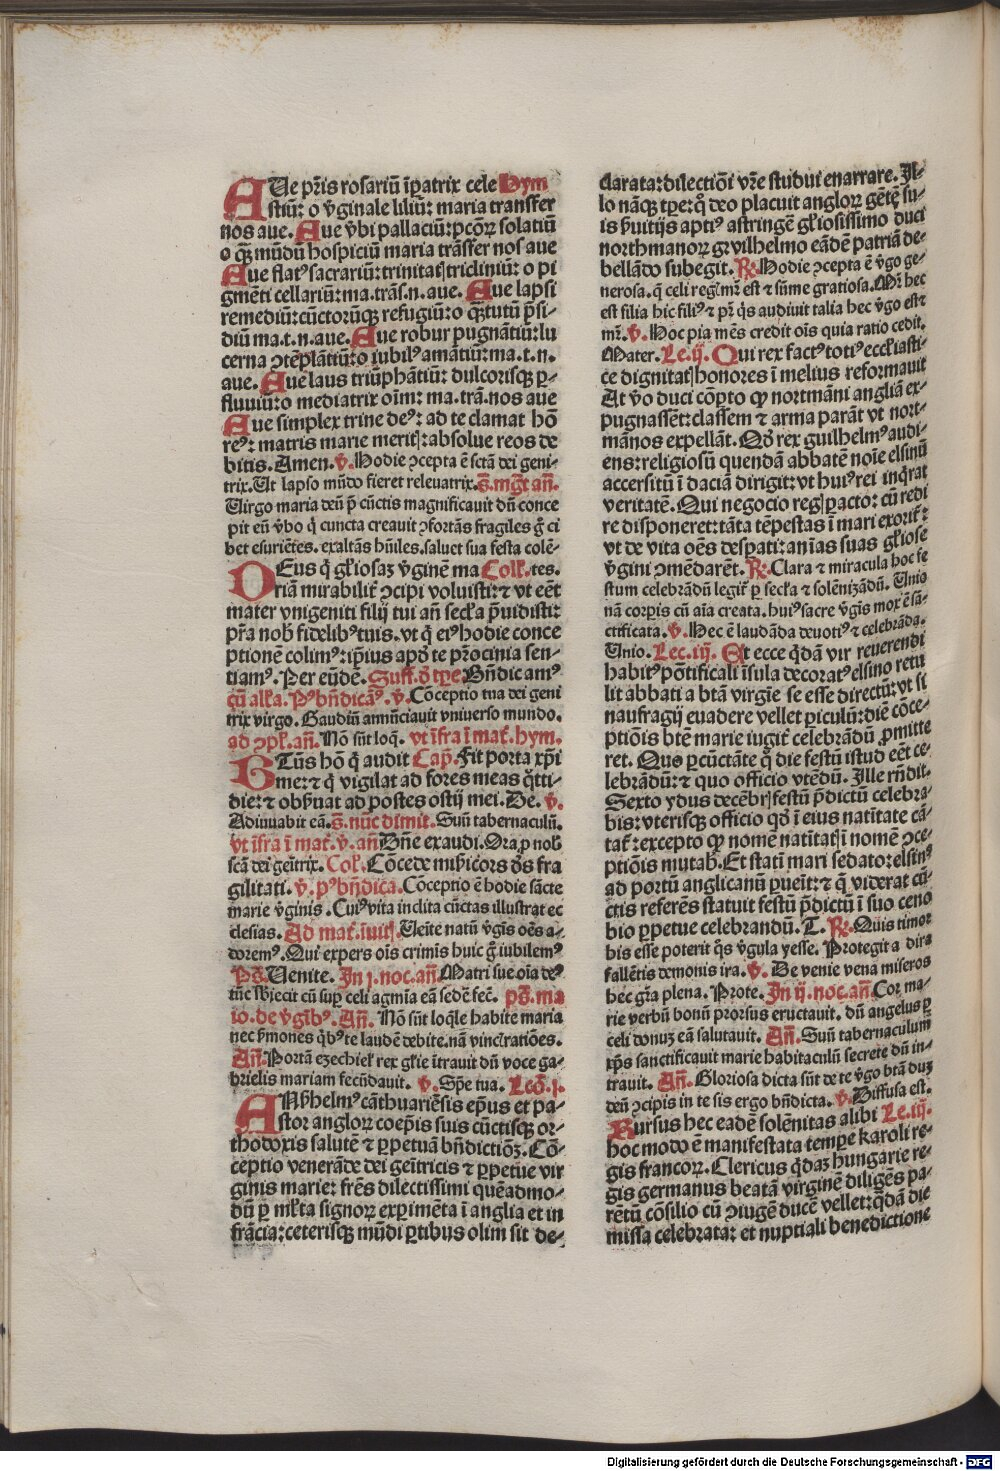 AUe pr̄is rosariū īpatrix cele Hym
stiū: o v̄ginale liliū: maria transfer
nos aue. Aue v̄bi pallaciū: pcōꝝ solatiū
o q̄ȝ mūdū hospiciū maria trāsfer nos aue
Aue flatꝰ sacrariū: trinitatꝭ tricliniū: o pi
gmēti cellariū: ma. trāſ. n. aue. Aue lapsi
remediū: cūctorūqȝ refugiū: o q̄ȝ tutū p̄si-
diū ma. t. n. aue. Aue robur pugnātiū: lu
cerna ꝯtēplātiū: o iubilꝰ amātiū: ma. t. n.
aue. Aue laus triūphātiū: dulcorisqȝ ꝑ-
fluuiū: o mediatrix oīm: ma. trā. nos aue
Aue simplex trine deꝰ: ad te clamat hō
reꝰ: matris marie meritꝭ: absolue reos de
bitis. Amen. v̄. Hodie ꝯcepta ē sctā dei geni-
trix. Ut lapso mūdo fieret releuatrix. s̄. mḡt an̄.
Uirgo maria deū p̄ cūctis magnificauit dn̄ conce
pit eū v̄bo q̄ cuncta creauit ꝯfortās fragiles q̄ ci
bet esuriētes. exaltās hūiles. saluet sua festa colē-
DEus q̄ gl̄iosaȝ v̄ginē ma Coll̄. tes.
riā mirabilit̄ ꝯcipi voluisti: ⁊ vt eēt
mater vnigeniti filij tui an̄ secl̄a p̄uidisti:
pr̄a nob̄ fidelibꝰ tuis. vt q̄ eiꝰ hodie conce
ptionē colimꝰ: ip̄ius apd̄ te pr̄ocinia sen-
tiamꝰ. Per eūdē. Suff. ō tp̄e Bn̄dic amꝰ
cū all̄a. Pꝰ bn̄dicāꝰ. v̄. Cōceptio tua dei geni
trix virgo. Gaudiū annūciauit vniuerso mundo.
ad ꝯpl̄. an̄. Nō sūt loq̄. vt īfra ī mat̄. hym.
BTūs hō q̄ audit Cap̄. Fit porta xp̄i
me: ⁊ q̄ vigilat ad fores meas q̄tti-
die: ⁊ obẜuat ad postes ostij mei. De. v̄.
Adiuuabit eā. s̄. nūc dimit. Suū tabernaculū.
vt īfra ī mat̄. v̄. an̄ Dn̄e exaudi. Ora p̄ nob̄
scā dei geītrix. Coll̄. Cōcede miẜicors ds̄ fra
gilitati. v̄. pꝰ bn̄dica. Cōceptio ē hodie sācte
marie v̄ginis. Cuiꝰ vita inclita cūctas illustrat ec
clesias. Ad mat̄. iuitꝭ. Ueīte natū v̄gīs oēs a-
doremꝰ. Qui expers oīs crimīs huic q̄ iubilemꝰ
Ps̄. Uenite. In j. noc. an̄ Matri sue oīa deꝰ
tūc sb̄iecit cū suꝑ celi agmīa eā sedē fec̄. ps̄. ma
io. de v̄gībꝰ. An̄. Nō sūt loq̄le habite maria
nec ẜmones q̄bꝰ te laudē debite. nā vinctꝭ ratiōes.
An̄. Portā ezechiel̄ rex gl̄ie ītrauit dū voce ga-
brielis mariam fecūdauit. v̄. Spē tua. Lecō. j.
ANẜhelmꝰ cāthuariēsis ep̄us et pa-
stor angloꝝ coep̄is suis cūctisqȝ or-
thodoxis salutē ⁊ ꝑpetuā bn̄dictiōȝ. Cō-
ceptio venerāde dei geītricis ⁊ ꝑpetue vir
ginis marie: fr̄es dilectissimi quēadmo-
dū ꝑ ml̄ta signoꝝ exꝑimēta ī anglia et in
frācia: ceterisqȝ mūdi ꝑtibus olim sit de-
clarata: dilectiōi vr̄e studui enarrare. Il-
lo nāqȝ tp̄e: q̄ deo placuit angloꝝ gētē su-
is ẜuitijs aptiꝰ astringē gl̄iosissimo duci
northmanoꝝ gwilhelmo eādē patriā de-
bellādo subegit. R̄. Hodie ꝯcepta ē v̄go ge-
nerosa. q̄ celi regꝭ mr̄ est ⁊ sūme gratiosa. Mr̄ hec
est filia hic filiꝰ ⁊ pr̄ q̄s audiuit talia hec v̄go est ⁊
mr̄. v̄. Hoc pia mēs credit oīs quia ratio cedit.
Mater. Le. ij. Qui rex factꝰ totiꝰ eccl̄iasti-
ce dignitatꝭ honores ī melius reformauit
At v̄o duci cōpto ꝙ nortmāni angliā ex-
pugnassēt: classem ⁊ arma parāt vt nort-
mānos expellāt. Qd̄ rex guilhelmꝰ audi-
ens: religiosū quendā abbatē noīe elsinū
accersitū ī daciā dirigit: vt huiꝰ rei inq̄rat
veritatē. Qui negocio regꝭ pacto: cū redi
re disponeret: tāta tēpestas ī mari exorit̄:
vt de vita oēs despati: aīas suas gl̄iose
v̄gini ꝯmēdarēt. R̄. Clara ⁊ miracula hoc fe
stum celebrādū legit̄ ꝑ secl̄a ⁊ solēnizādū. Unio
nā corpis cū aīa creata. huiꝰ sacre v̄gīs mox ē sā-
ctificata. v̄. Hec ē laudāda deuotiꝰ ⁊ celebrāda.
Unio. Lec. iij. Et ecce q̄dā vir reuerendi
habitꝰ pōtificali īsula decoratꝰ elsino retu
lit abbati a btā virgīe se esse directū: vt si
naufragij euadere vellet ꝑiculū: diē cōce-
ptiōis btē marie iugit̄ celebrādū ꝓmitte
ret. Quo ꝑcūctāte q̄ die festū istud eēt ce-
lebrādū: ⁊ quo officio vtēdū. Ille rn̄dit.
Sexto ydus decēbrꝭ festū p̄dictū celebra-
bis: vterisqȝ officio qd̄ ī eius natītate cā-
tat̄: excepto ꝙ nomē natītatꝭ ī nomē ꝯce-
ptiōis mutab̄. Et statī mari sedato: elsinꝰ
ad portū anglicanū ꝑueīt: ⁊ q̄ viderat cū-
ctis referēs statuit festū p̄dictū ī suo ceno
bio ꝑpetue celebrandū. T. R̄. Quis timor
bis esse poterit q̄s v̄gula yesse. Protegit a dira
fallētis demonis ira. v̄. De venie vena miseros
hec gr̄a plena. Prote. In ij. noc. an̄. Cor ma-
rie verbū bonū prorsus eructauit. dū angelus ꝑ
celi donuȝ eā salutauit. An̄. Suū tabernaculum
xp̄s sanctificauit marie habitaculū secrete dū in-
trauit. An̄. Gloriosa dicta sūt de te v̄go btā duȝ
deū ꝯcipis in te sis ergo bn̄dicta. v̄. Diffusa est.
Rursus hec eadē solēnitas alibi Le. iij.
hoc modo ē manifestata tempe karoli re-
gis francoꝝ. Clericus q̄daȝ hungarie re-
gis germanus beatā virginē diligēs pa-
rētū cōsilio cū ꝯiugē ducē vellet: q̄dā die
missa celebrata: et nuptiali benedictione
Digitalisierung gefördert durch die Deutsche Forschungsgemeinschaft - DFG